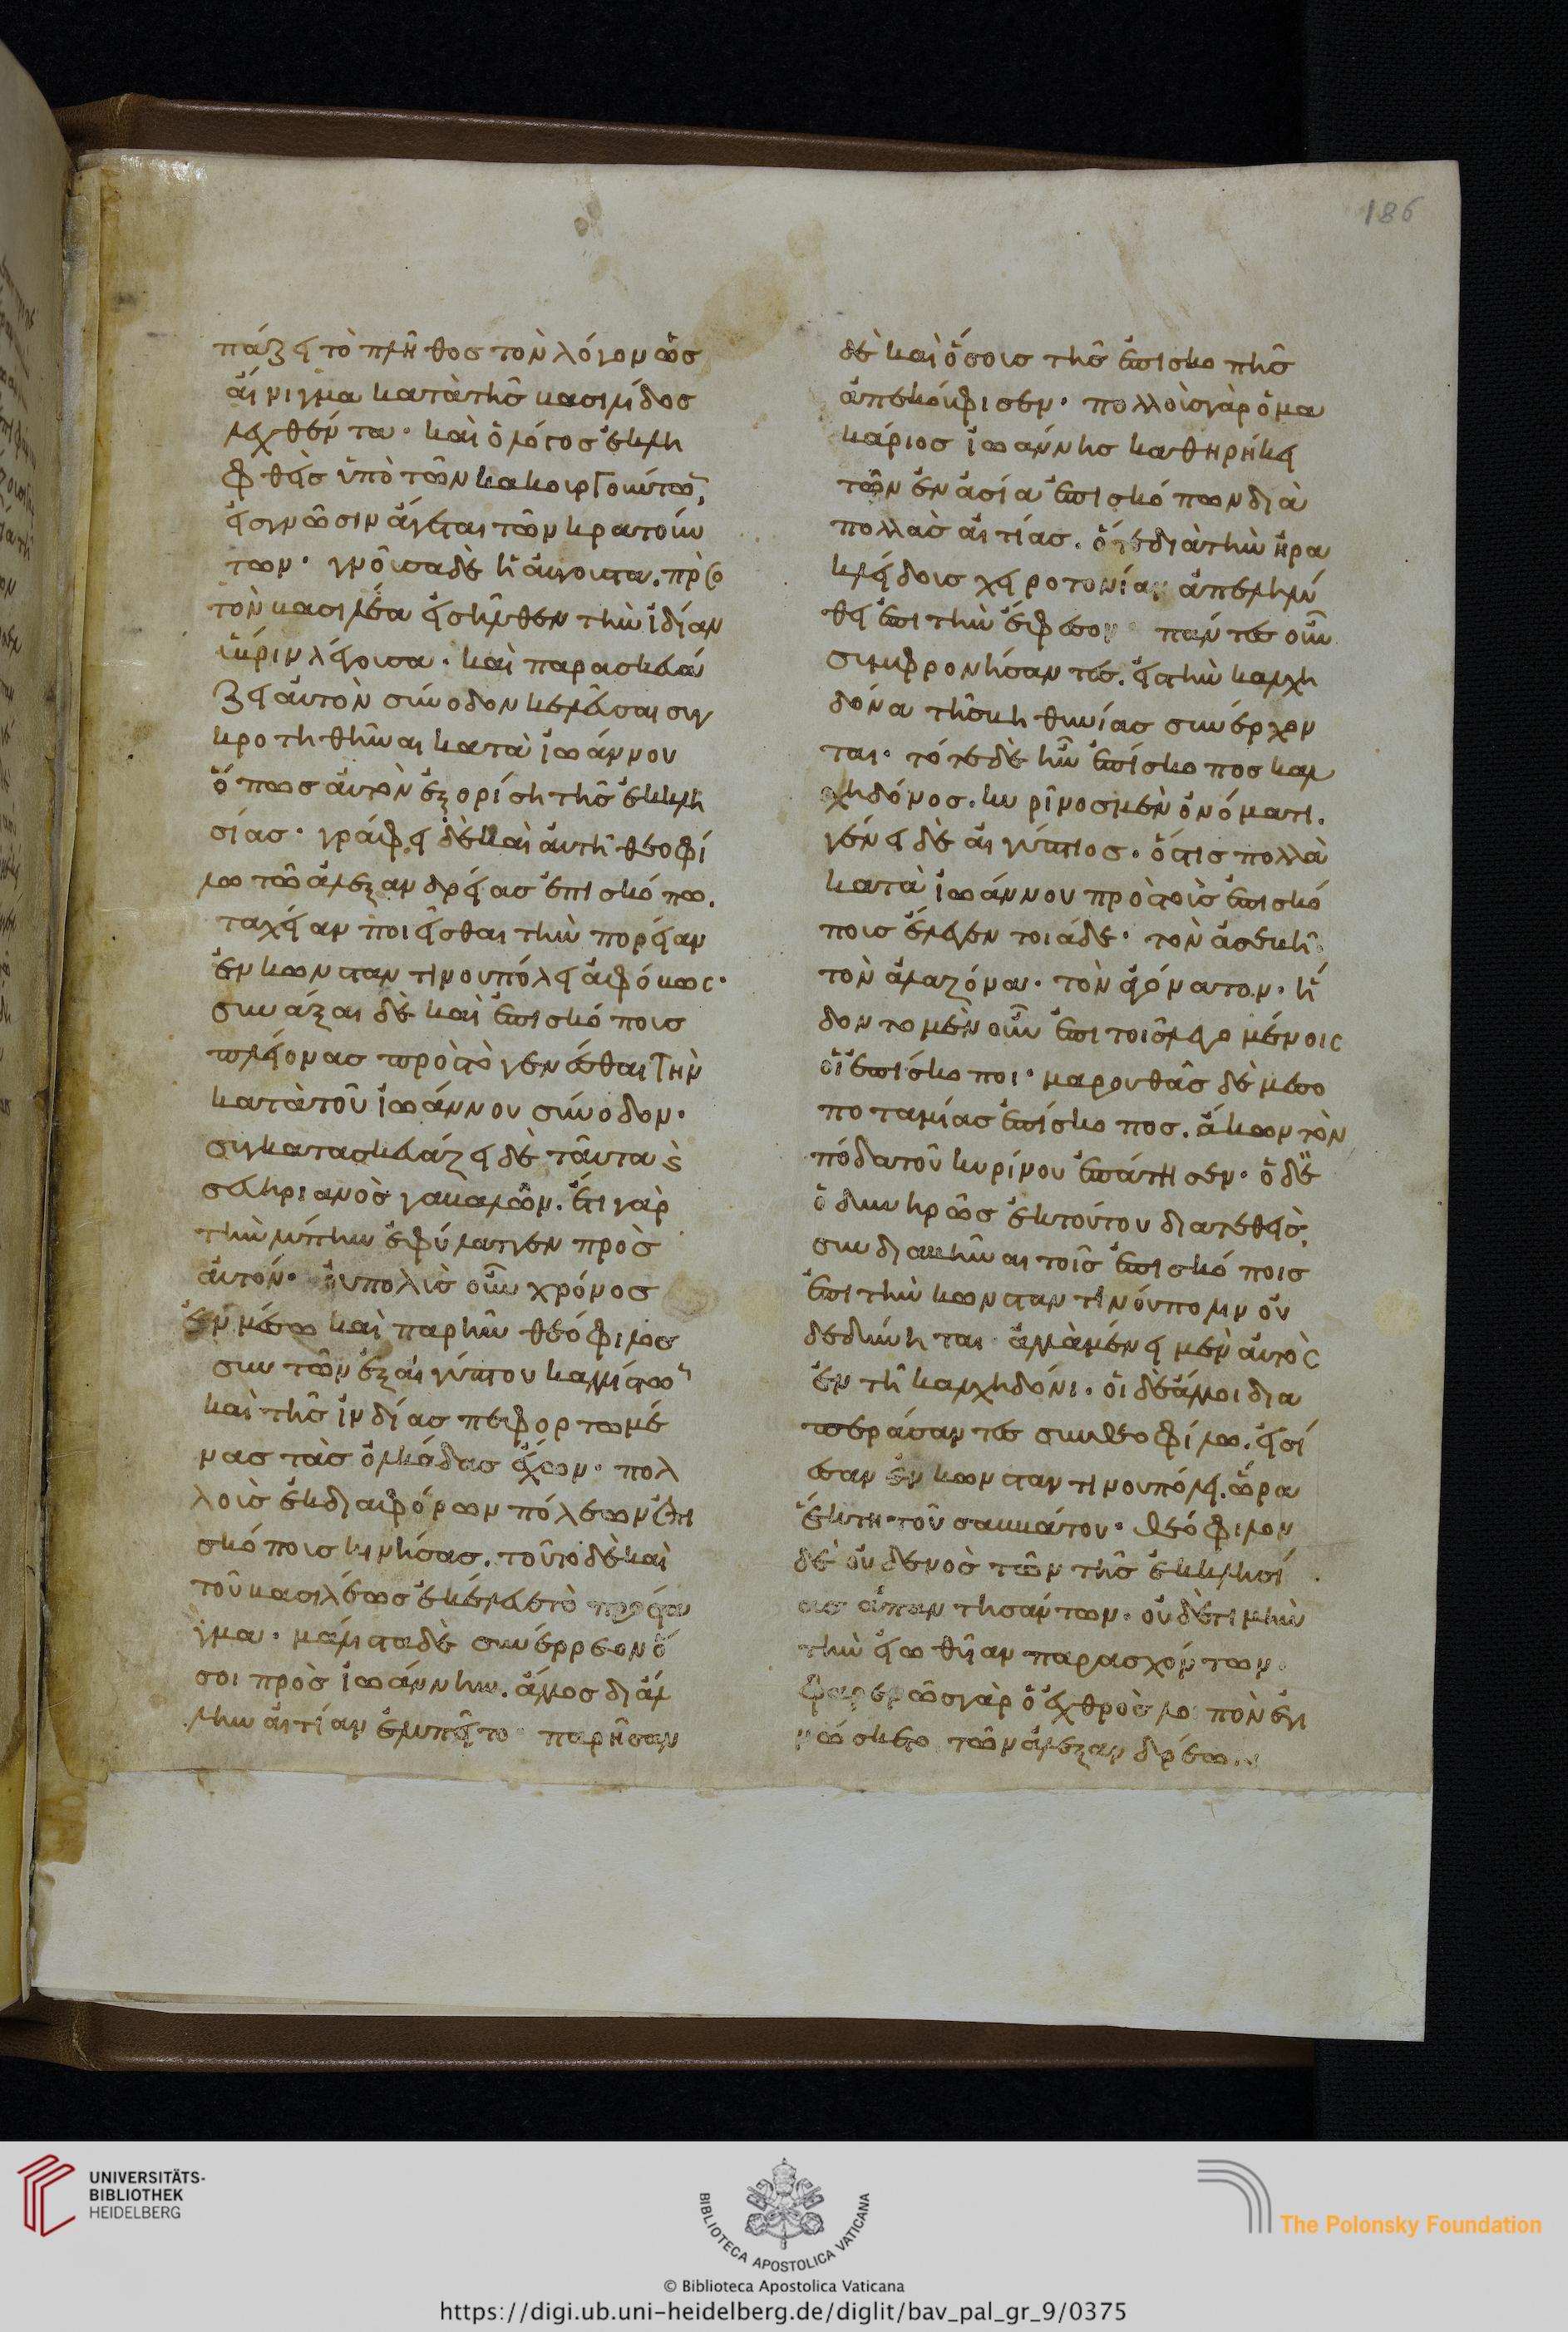 186
πάζει τὸ πλῆθος τὸν λόγον ὡς
αἴνιγμα κατὰ τῆς βασιλίδος
λεχθέντα· καὶ ὁ λόγος ἐκλη
φθεὶς ὑπὸ τῶν κακουργούντων,
εἰς γνῶσιν ἄγεται τῶν κρατούν
των· γνοῦσα δὲ ἡ αὔγουστα, πρὸς
τὸν βασιλέα εἰσῆλθεν τὴν ἰδίαν
ὕβριν λέγουσα· καὶ παρασκευά
ζει αὐτὸν σύνοδον κελεῦσαι συγ
κροτηθῆναι κατὰ ἰωάννου
ὅπως αὐτὸν ἐξορίση τῆς ἐκκλη
σίας· γράφει δὲ καὶ αὐτὴ θεοφί
λω τῶ ἀλεξανδρείας ἐπισκόπω,
ταχεῖαν ποιεῖσθαι τὴν πορείαν
ἐν κωνσταντινουπόλει ἀφόβως·
συνάξαι δὲ καὶ ἐπισκόπους
πλείονας πρὸς τὸ γενέσθαι τὴν
κατὰ τοῦ ἰωάννου σύνοδον·
συγκατασκευάζει δὲ ταῦτα καὶ
σευηριανὸς γαβαλῶν. ἔτι γὰρ
τὴν λύπην ἐφύλαττεν πρὸς
αὐτόν· οὐ πολὺς οὖν χρόνος
ἐν μέσω καὶ παρῆν θεόφιλος
συν τῶν ἐξ αἰγύπτου καλλίστων
καὶ τῆς ἰνδίας πεφορτωμέ
νας τὰς ὁλκάδας ἔχων· πολ
λοὺς ἐκ διαφόρων πόλεων ἐπι
σκόπους κινήσας. τοῦτο δὲ καὶ
τοῦ βασιλέως ἐκέλευε τὸ πρόσταγμα
γμα· μάλιστα δὲ συνέρρεον ὅ
σοι πρὸς ἰωάννην. ἄλλος δι' ἄλ
λην αἰτίαν ἐλυπεῖτο· παρῆσαν
δὲ καὶ ὅσους τῆς ἐπισκοπῆς
ἀπεκούφισεν· πολλοὺς γὰρ ὁ μα
κάριος ἰωάννης καθηρήκει
τῶν ἐν ἀσία ἐπισκόπων διὰ
πολλὰς αἰτίας. ὅτε διὰ τὴν ἡρα
κλείδους χειροτονίαν ἀπεληλύ
θει ἐπὶ τὴν ἔφεσον· πάντες οὖν
συμφρονήσαντες. εἰς τὴν καλχη
δόνα τῆς βηθυνίας συνέρχον
ται· τότε δὲ ἦν ἐπίσκοπος καλ
χηδόνος. κυρῖνος μὲν ὀνόματι.
γένει δὲ αἰγύπτιος. ὅστις πολλὰ
κατὰ ἰωάννου πρὸς τοὺς ἐπισκό
πους ἔλεγεν τοιάδε· τὸν ἀσεβῆ.
τὸν ἀλαζόνα. τὸν ἀγόνατον. ἥ
δοντο μὲν οὖν ἐπὶ τοῖς λεγομένοις
οἱ ἐπίσκοποι· μαρουθᾶς δὲ μεσο
ποταμίας ἐπίσκοπος. ἄκων τὸν
πόδα τοῦ κυρίνου ἐπάτησεν· ὁ δὲ
ὀδυνηρῶς ἐκ τούτου διατεθεὶς,
συνδιαβῆναι τοῖς ἐπισκόποις
ἐπὶ τὴν κωνσταντινούπολιν οὐ
δεδύνηται· ἀλλὰ μένει μὲν αὐτὸς
ἐν τῆ καλχηδόνι. οἱ δὲ ἄλλοι δια
περάσαντες συν θεοφίλω. εἰσί
εσαν ἐν κωνσταντινουπόλει. ὥρα
ἕκτη τοῦ σαββάτου. θεόφιλον
δὲ οὐδενὸς τῶν τῆς ἐκκλησί
ας ἀπαντησάντων. οὐδὲ τιμὴν
τὴν εἰωθυῖαν παρασχόντων.
φανερῶς γὰρ ὁ ἐχθρὸς λοιπὸν ἐγι
νώσκετο τῶν ἀλεξανδρέων
UNIVERSITÄTS-
BIBLIOTHEK
HEIDELBERG
BIBLIOTECA APOSTOLICA VATICANA
The Polonsky Foundation
© Biblioteca Apostolica Vaticana
https://digi.ub.uni-heidelberg.de/diglit/bav_pal_gr_9/0375